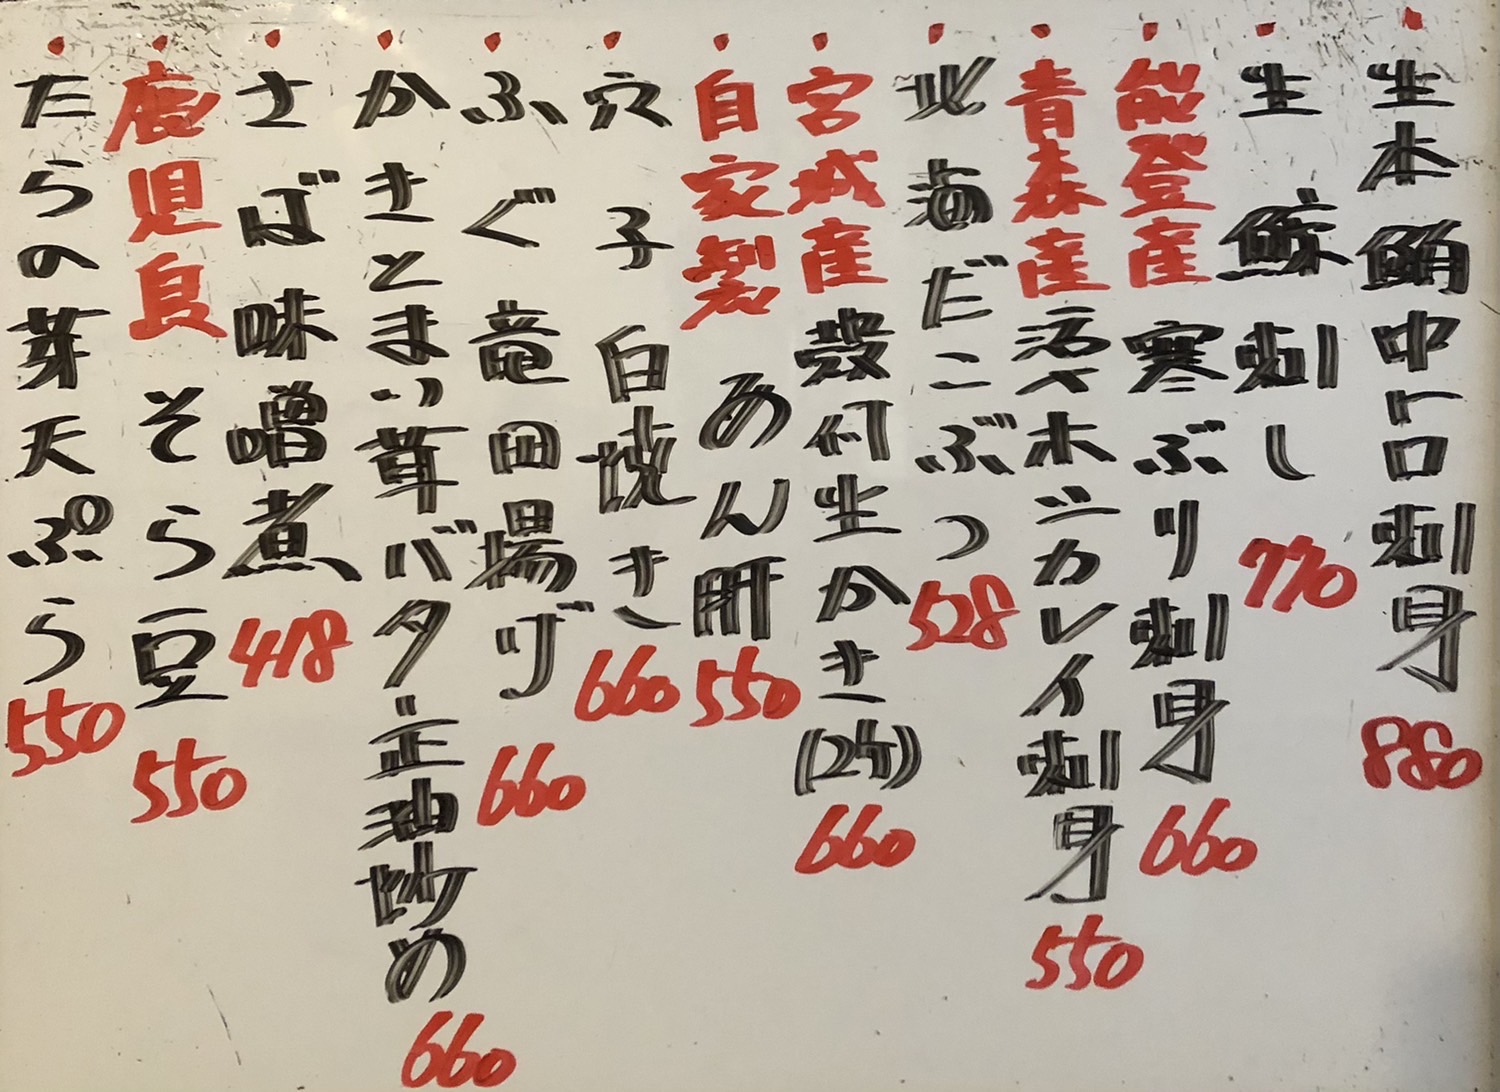 生本鮪中トロ刺身 880
生鯨刺し 770
能登産寒ぶり刺身 660
青森産活〆ホジカレイ刺身 550
北海だこぶつ 528
宮城産殻付生かき(2ケ) 660
自家製あん肝 550
穴子白焼き 660
ふぐ竜田揚げ 660
かきとまい茸バター正油炒め 660
さば味噌煮 418
鹿児島そら豆 550
たらの芽天ぷら 550